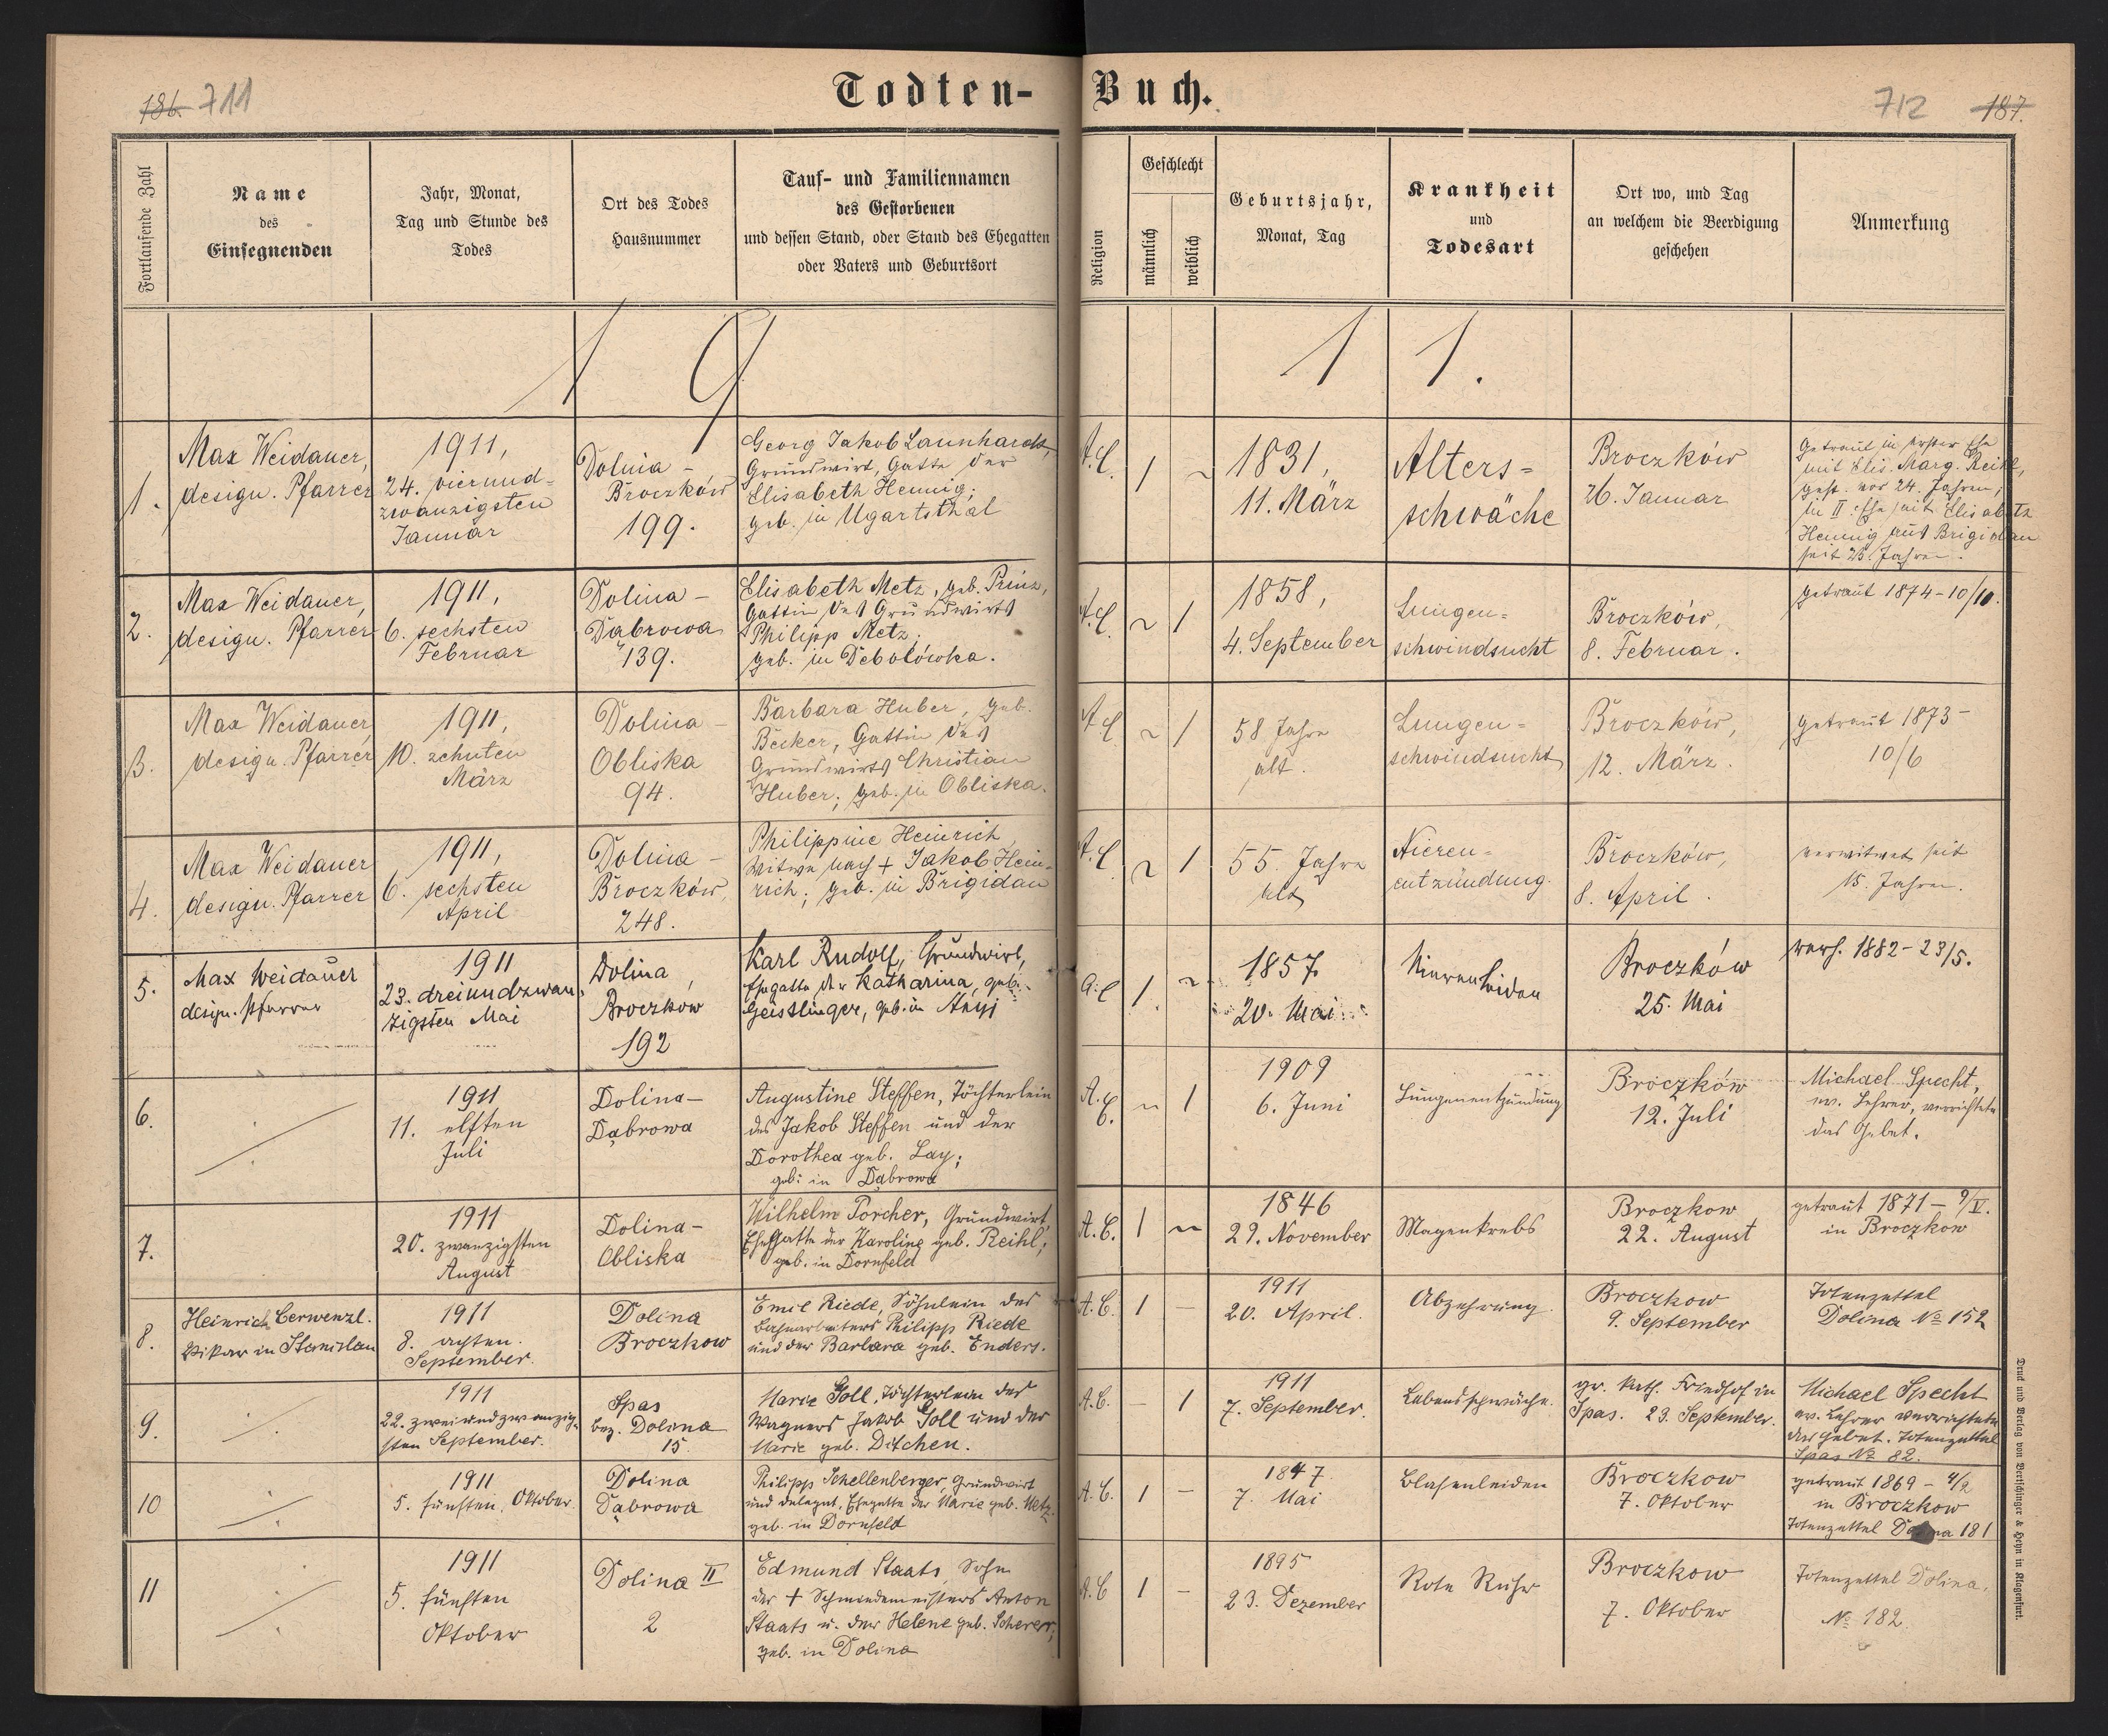 186. 711
Todten-
Buch.
712 187.
Fortlaufende Zahl
Name
des
Einsegnenden
Jahr, Monat,
Tag und Stunde des
Todes
Ort des Todes
Hausnummer
Tauf- und Familiennamen
des Gestorbenen
und dessen Stand, oder Stand des Ehegatten
oder Vaters und Geburtsort
Religion
Geschlecht
männlich
weiblich
Geburtsjahr,
Monat, Tag
Krankheit
und
Todesart
Ort wo, und Tag
an welchem die Beerdigung
geschehen
Anmerkung
1 9 1 1.
1.
Max Weidauer,
design. Pfarrer
1911,
24. vierund-
zwanzigsten
Januar
Dolina -
Broczków
199.
Georg Jakob Launhardt,
Grundwirt, Gatte der
Elisabeth Hennig;
geb. in Ugartsthal
A.C.
1
~
1831,
11. März
Alters-
schwäche
Broczków
26. Januar
Getraut in erster Ehe
mit Elis. Marg. Reikl,
gest. vor 24. Jahren;
in II. Ehe mit Elisabeth
Hennig aus Brigidau
seit 23. Jahren.
2.
Max Weidauer,
design. Pfarrer
1911,
6. sechsten
Februar
Dolina -
Dąbrowa
139.
Elisabeth Metz, geb. Prinz,
Gattin des Grundwirts
Philipp Metz;
geb. in Debolówka.
A.C.
~
1
1858,
4. September
Lungen-
schwindsucht
Broczków,
8. Februar.
getraut 1874-10/10.
3.
Max Weidauer
design. Pfarrer
1911,
10. zehnten
März
Dolina -
Obliska
94.
Barbara Huber, geb.
Becker, Gattin des
Grundwirts Christian
Huber; geb. in Obliska.
A.C.
~
1
58 Jahre
alt.
Lungen-
schwindsucht
Broczków,
12. März.
getraut 1873-
10/6
4.
Max Weidauer
design. Pfarrer
1911,
6. sechsten
April
Dolina -
Broczków,
248.
Philippine Heinrich
Witwe nach + Jakob Hein-
rich; geb. in Brigidau
A.C.
~
1
55. Jahre
alt
Nieren-
entzündung.
Broczków,
8. April.
verwitwet seit
15. Jahren.
5.
Max Weidauer
design. Pfarrer
1911
23. dreiundzwan-
zigsten Mai
Dolina,
Broczków
192
Karl Rudolf, Grundwirt,
Ehegatte der Katharina, geb.
Geistlinger, geb. in
A.C
1.
~
1857.
20. Mai
Nierenleiden
Broczków
25. Mai
verh. 1882-23/5.
6.
1911
11. elften
Juli
Dolina-
Dąbrowa
Augustine Steffen, Töchterlein
des Jakob Steffen und der
Dorothea geb. Lay;
geb. in Dąbrowa
A.C.
~
1
1909
6. Juni
Lungenentzündung
Broczków
12. Juli
Michael Specht,
ev. Lehrer, verrichtete
das Gebet.
7.
1911
20. zwanzigsten
August
Dolina-
Obliska
Wilhelm Porcher, Grundwirt,
Ehegatte der Karoline geb. Reikl;
geb. in Dornfeld
A.C.
1
~
1846
29. November
Magenkrebs
Broczkow
22. August
getraut 1871- 9/V.
in Broczkow
8.
Heinrich Cerwenzl.
Vikar in Stanislau
1911
8. achten.
September.
Dolina
Broczkow
Emil Riede, Söhnlein des
Bahnarbeiters Philipp Riede
und der Barbara geb. Enders.
A.C.
1
-
1911
20. April.
Abzehrung.
Broczkow
9. September
Totenzettel
Dolina № 152
9.
1911
22. zweiundzwanzig-
sten September.
Spas
bez. Dolina
15
Marie Goll, Töchterlein des
Wagners Jakob Goll und der
Marie geb. Ditchen.
A.C.
-
1
1911
7. September.
Lebensschwäche.
gr. kath. Friedhof in
Spas. 23. September.
Michael Specht
ev. Lehrer verrichtete
das Gebet. Totenzettel
Spas № 82.
10
1911
5. fünften Oktober.
Dolina
Dąbrowa
Philipp Schellenberger, Grundwirt
und delegat, Ehegatte der Marie geb. Metz
geb. in Dornfeld
A.C.
1
-
1847
7. Mai
Blasenleiden
Broczkow
7. Oktober
getraut 1869 - 4/2
in Broczkow
Totenzettel Dolina 181
11
1911
5. fünften
Oktober
Dolina II
2
Edmund Staats, Sohn
des + Schmiedemeisters Anton
Staats u. der Helene geb. Scherer;
geb. in Dolina
A.C
1
-
1895
23. Dezember
Rote Ruhr
Broczkow
7. Oktober
Totenzettel Dolina,
№ 182.
Druck und Verlag von Bertschinger & Heyn in Klagenfurt.